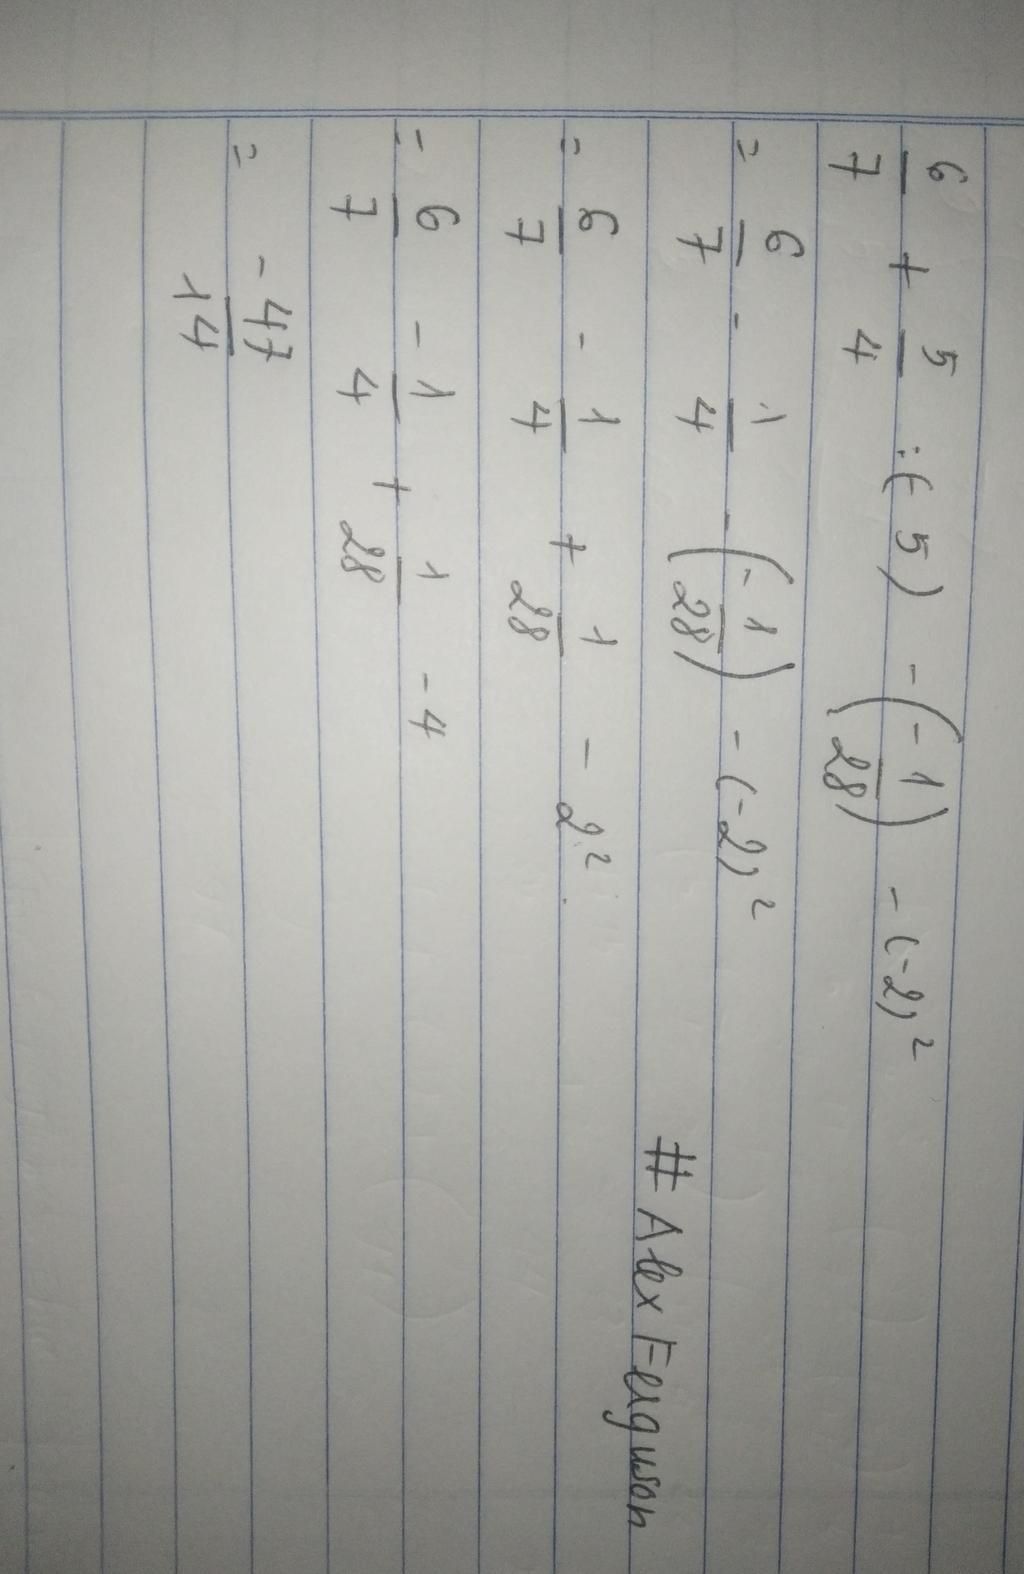 6/7 + 5/4 :(-5) - (-1/28) - (-2)²
= 6/7 - 1/4 - (-1/28) - (-2)²
= 6/7 - 1/4 + 1/28 - 2²
= 6/7 - 1/4 + 1/28 - 4
= -47/14
# Alex Ferguson